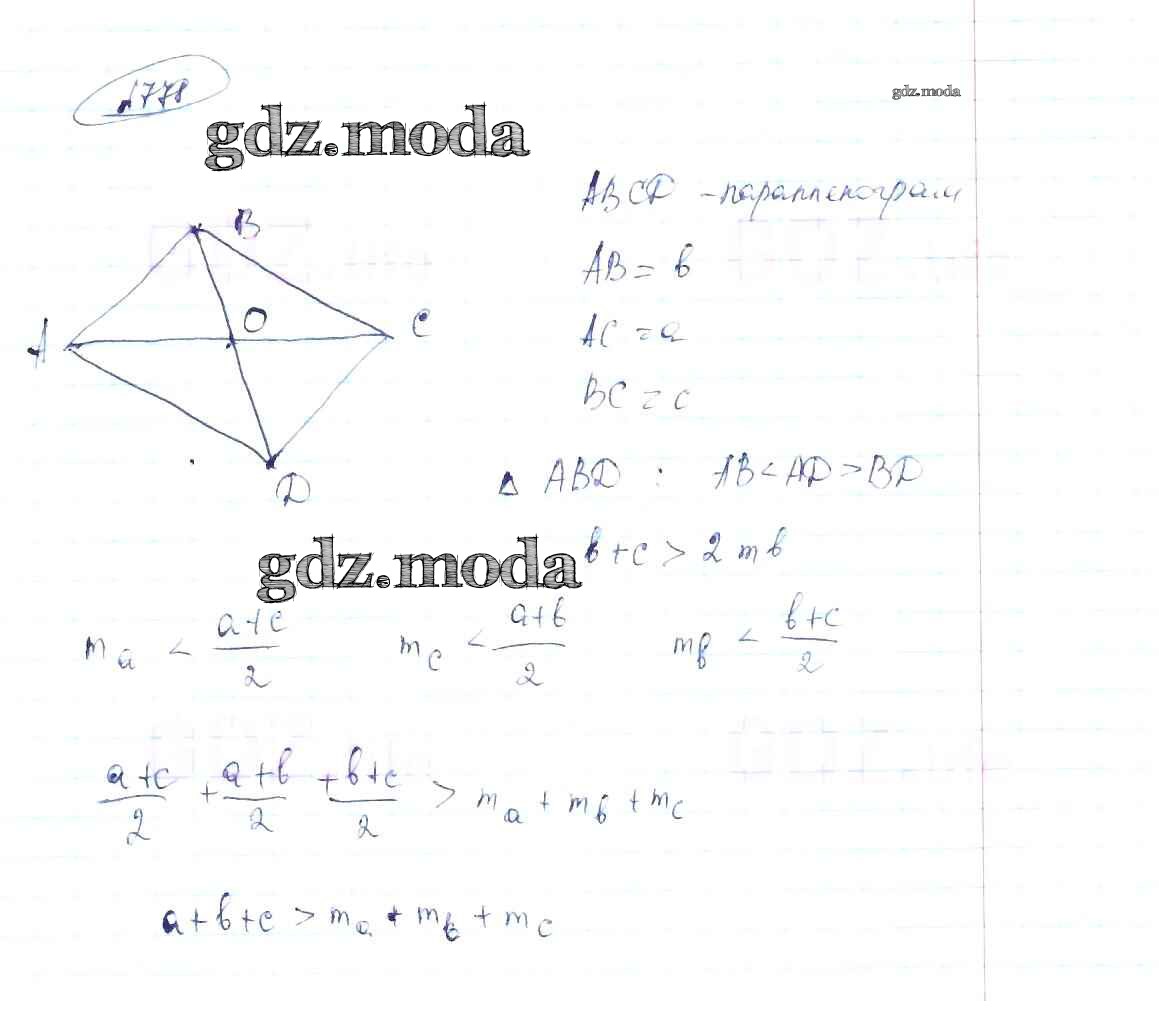 №778
gdz.moda
gdz.moda
ABCD - параллелограм
B
AB = b
O
C
A
AC = a
BC = c
D
Δ ABD : AB < AD > BD
gdz.moda
b + c > 2 m b
m a < a+c / 2 m c < a+b / 2 m b < b+c / 2
a+c / 2 + a+b / 2 + b+c / 2 > m a + m b + m c
a + b + c > m a + m b + m c